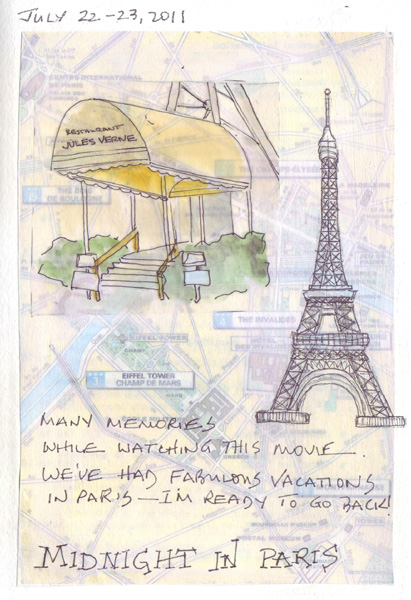 JULY 22-23, 2011
CENTRE INTERNATIONAL
DE PARIS
RESTAURANT
JULES VERNE
MADELEINE
THE BOIS
DE BOULOGNE
4 THE INVALIDES
EIFFEL TOWER
EIFFEL TOWER
CHAMP DE MARS
MANY MEMORIES
WHILE WATCHING THIS MOVIE.
WE'VE HAD FABULOUS VACATIONS
IN PARIS—I'M READY TO GO BACK!
POSTAL MUSEUM
MIDNIGHT IN PARIS